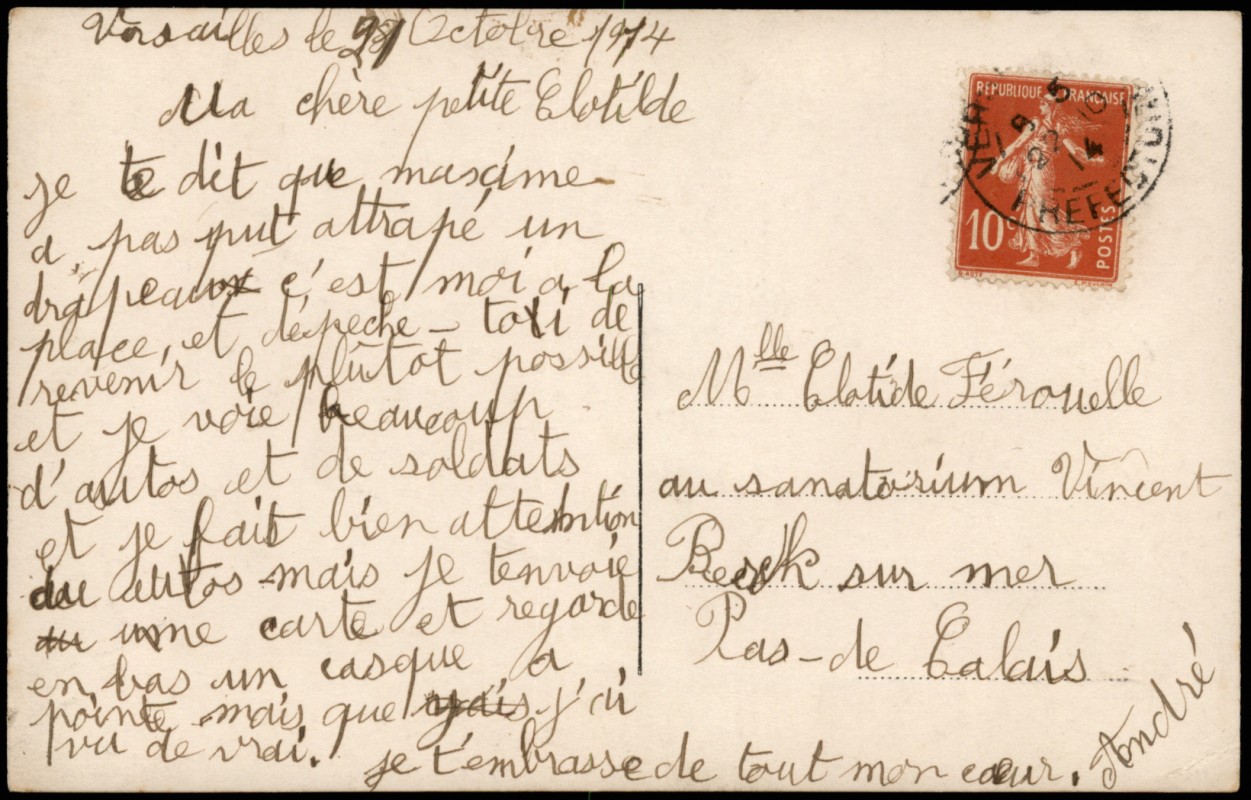 Versailles le 21 Octobre 1914
Ma chère petite Clotilde
je te dit que maxime
a pas put attrapé un
drapeaux c'est moi a la
place, et dépeche-toi de
revenir le plutôt possible
et je voie beaucoup
d'autos et de soldats
et je fait bien attention
au autos mais je tenvoie
une carte et regarde
en bas un casque a
pointe mais que j'ai
vu de vrai.
je t'embrasse de tout mon cœur. André
RÉPUBLIQUE FRANÇAISE
10c POSTES
PREFECTURE
Mlle Clotide Férouelle
au sanatorium Vincent
Berck sur mer
Pas-de Calais